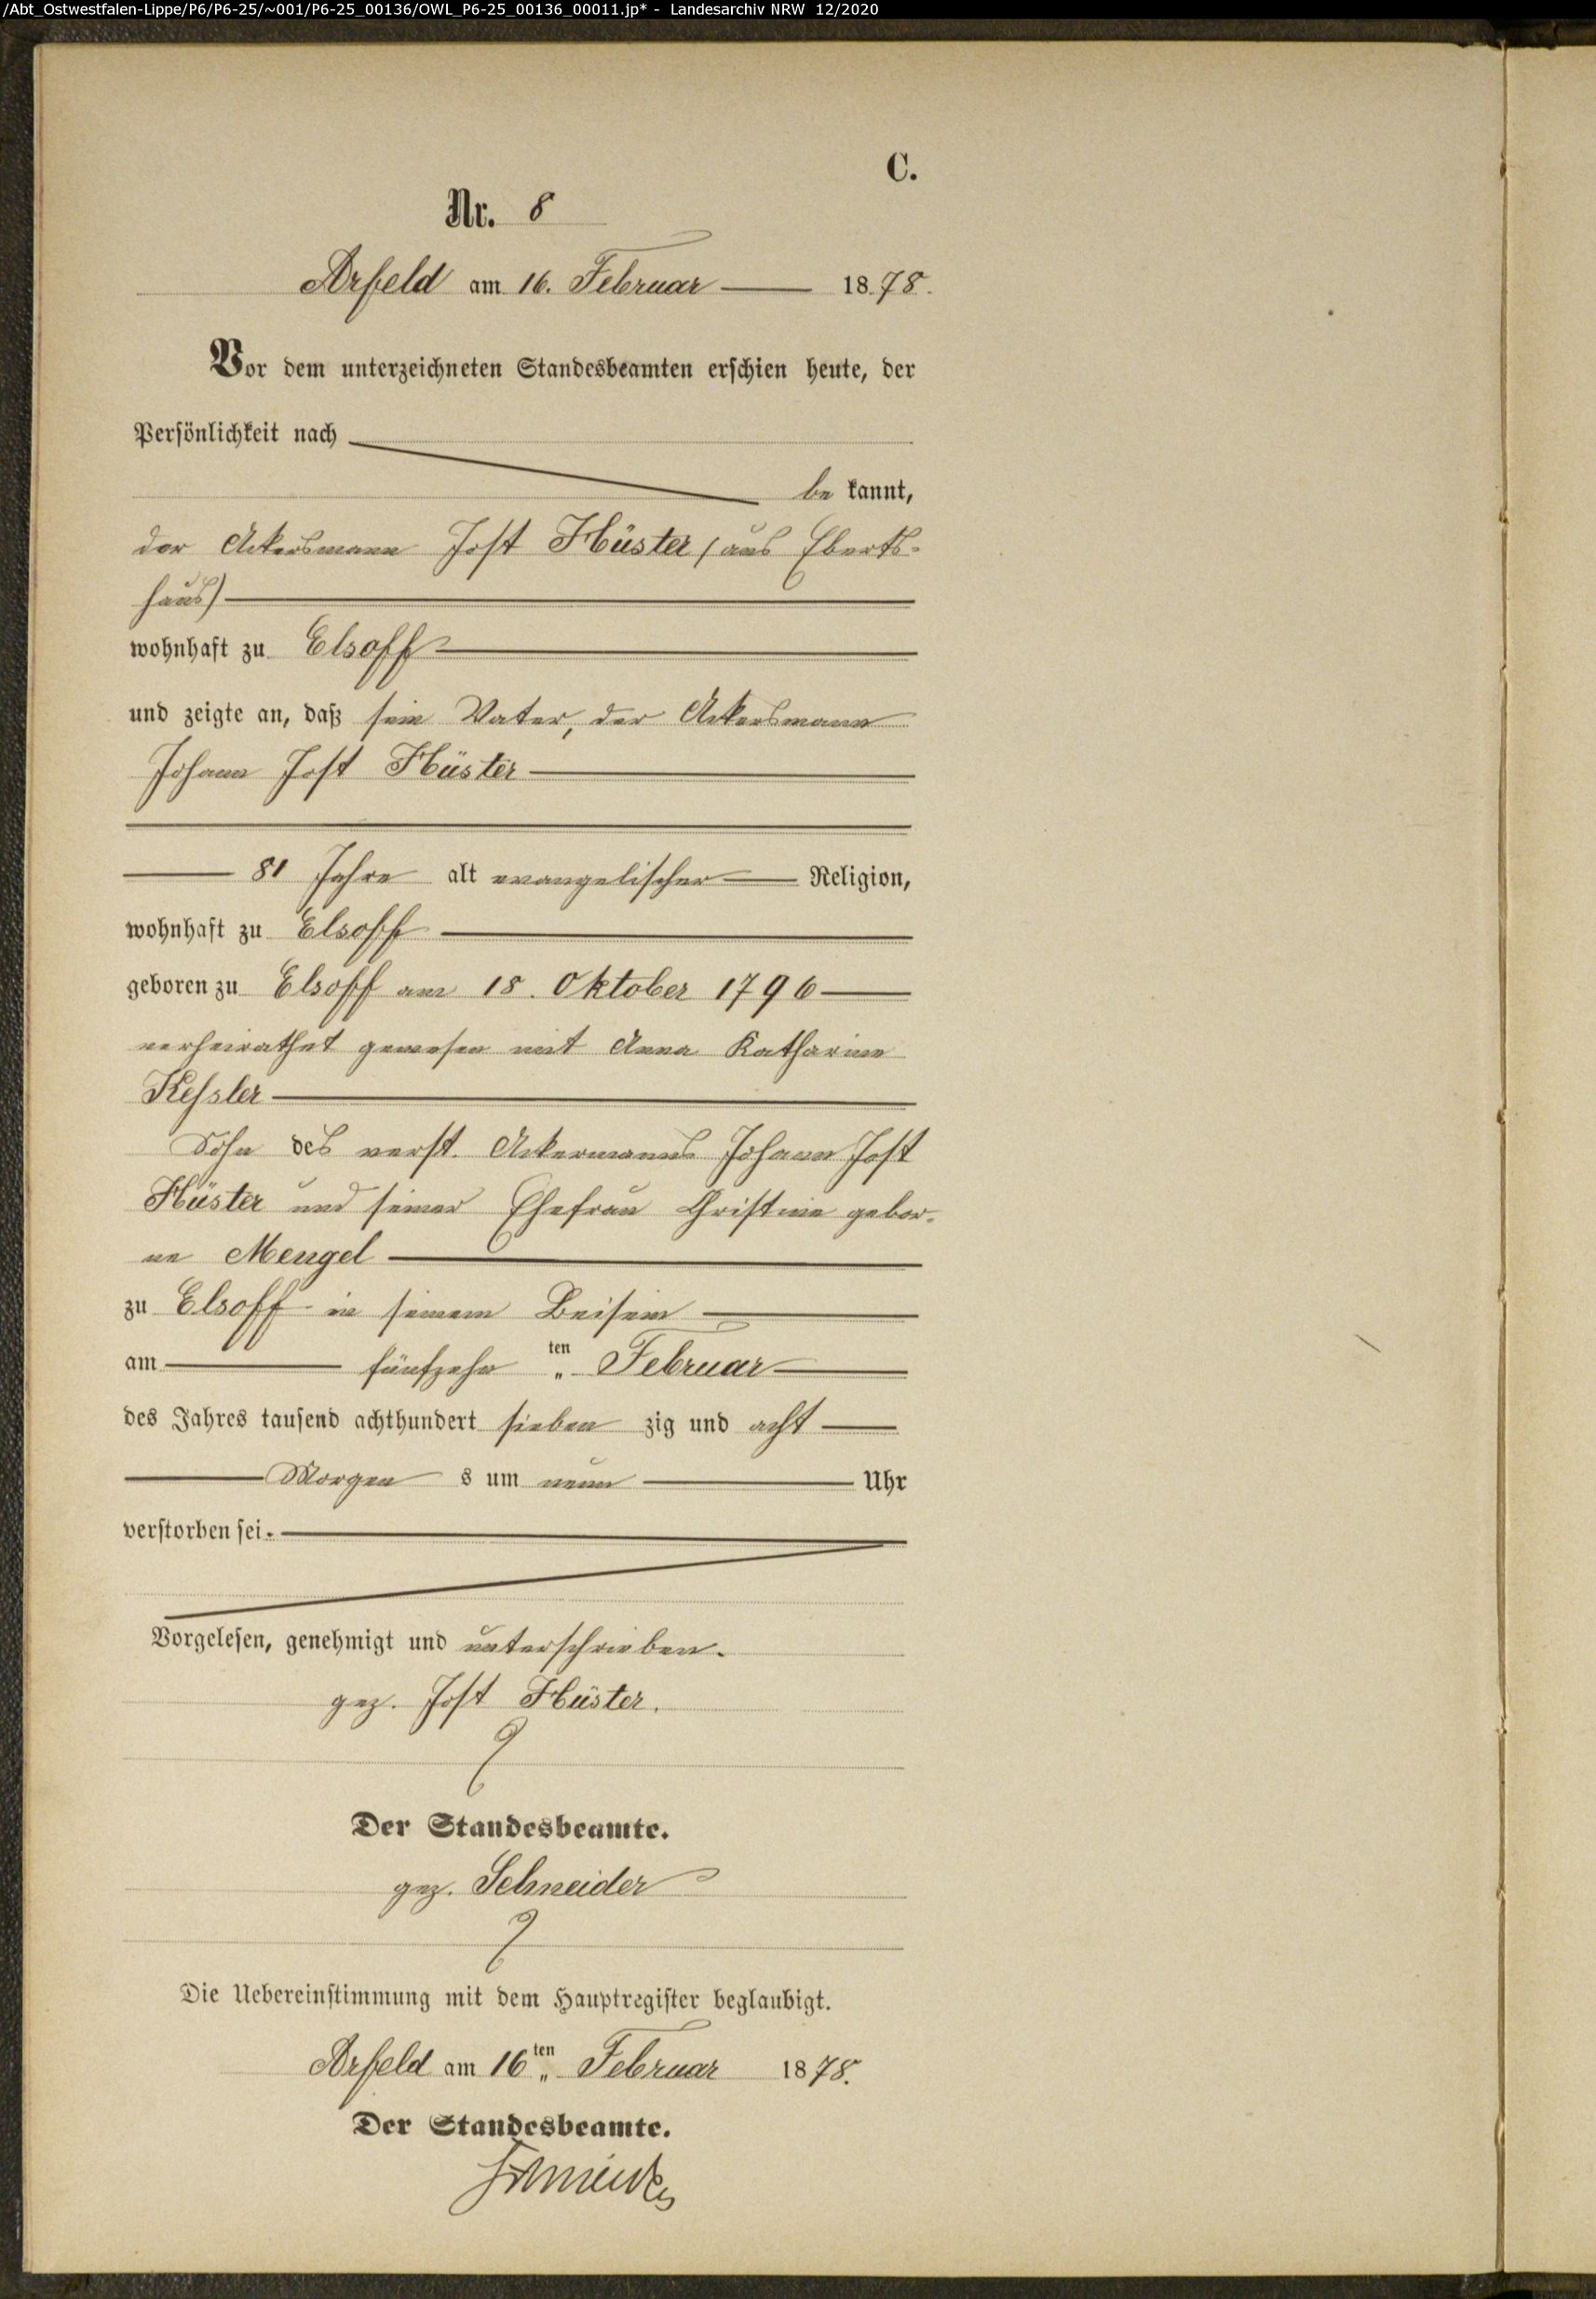 /Abt_Ostwestfalen-Lippe/P6/P6-25/~001/P6-25_00136/OWL_P6-25_00136_00011.jp* - Landesarchiv NRW 12/2020
C.
Nr. 8
Arfeld am 16. Februar 1878.
Vor dem unterzeichneten Standesbeamten erschien heute, der
Persönlichkeit nach
bekannt,
der Ackersmann Jost Hüster (aus Eberts-
haus)
wohnhaft zu Elsoff
und zeigte an, daß sein Vater, der Ackersmann
Johann Jost Hüster
81 Jahre alt evangelischer Religion,
wohnhaft zu Elsoff
geboren zu Elsoff am 18. Oktober 1796
verheirathet gewesen mit Anna Katharine
Kessler
Sohn des verst. Ackermanns Johann Jost
Hüster und seiner Ehefrau Christine gebor-
ne Mengel
zu Elsoff in seinem Beisein
am fünfzehnten Februar
des Jahres tausend achthundert siebenzig und acht
Morgens um neun Uhr
verstorben sei.
Vorgelesen, genehmigt und unterschrieben.
gez. Jost Hüster.
Der Standesbeamte.
gez. Schneider
Die Uebereinstimmung mit dem Hauptregister beglaubigt.
Arfeld am 16ten Februar 1878.
Der Standesbeamte.
Schneider